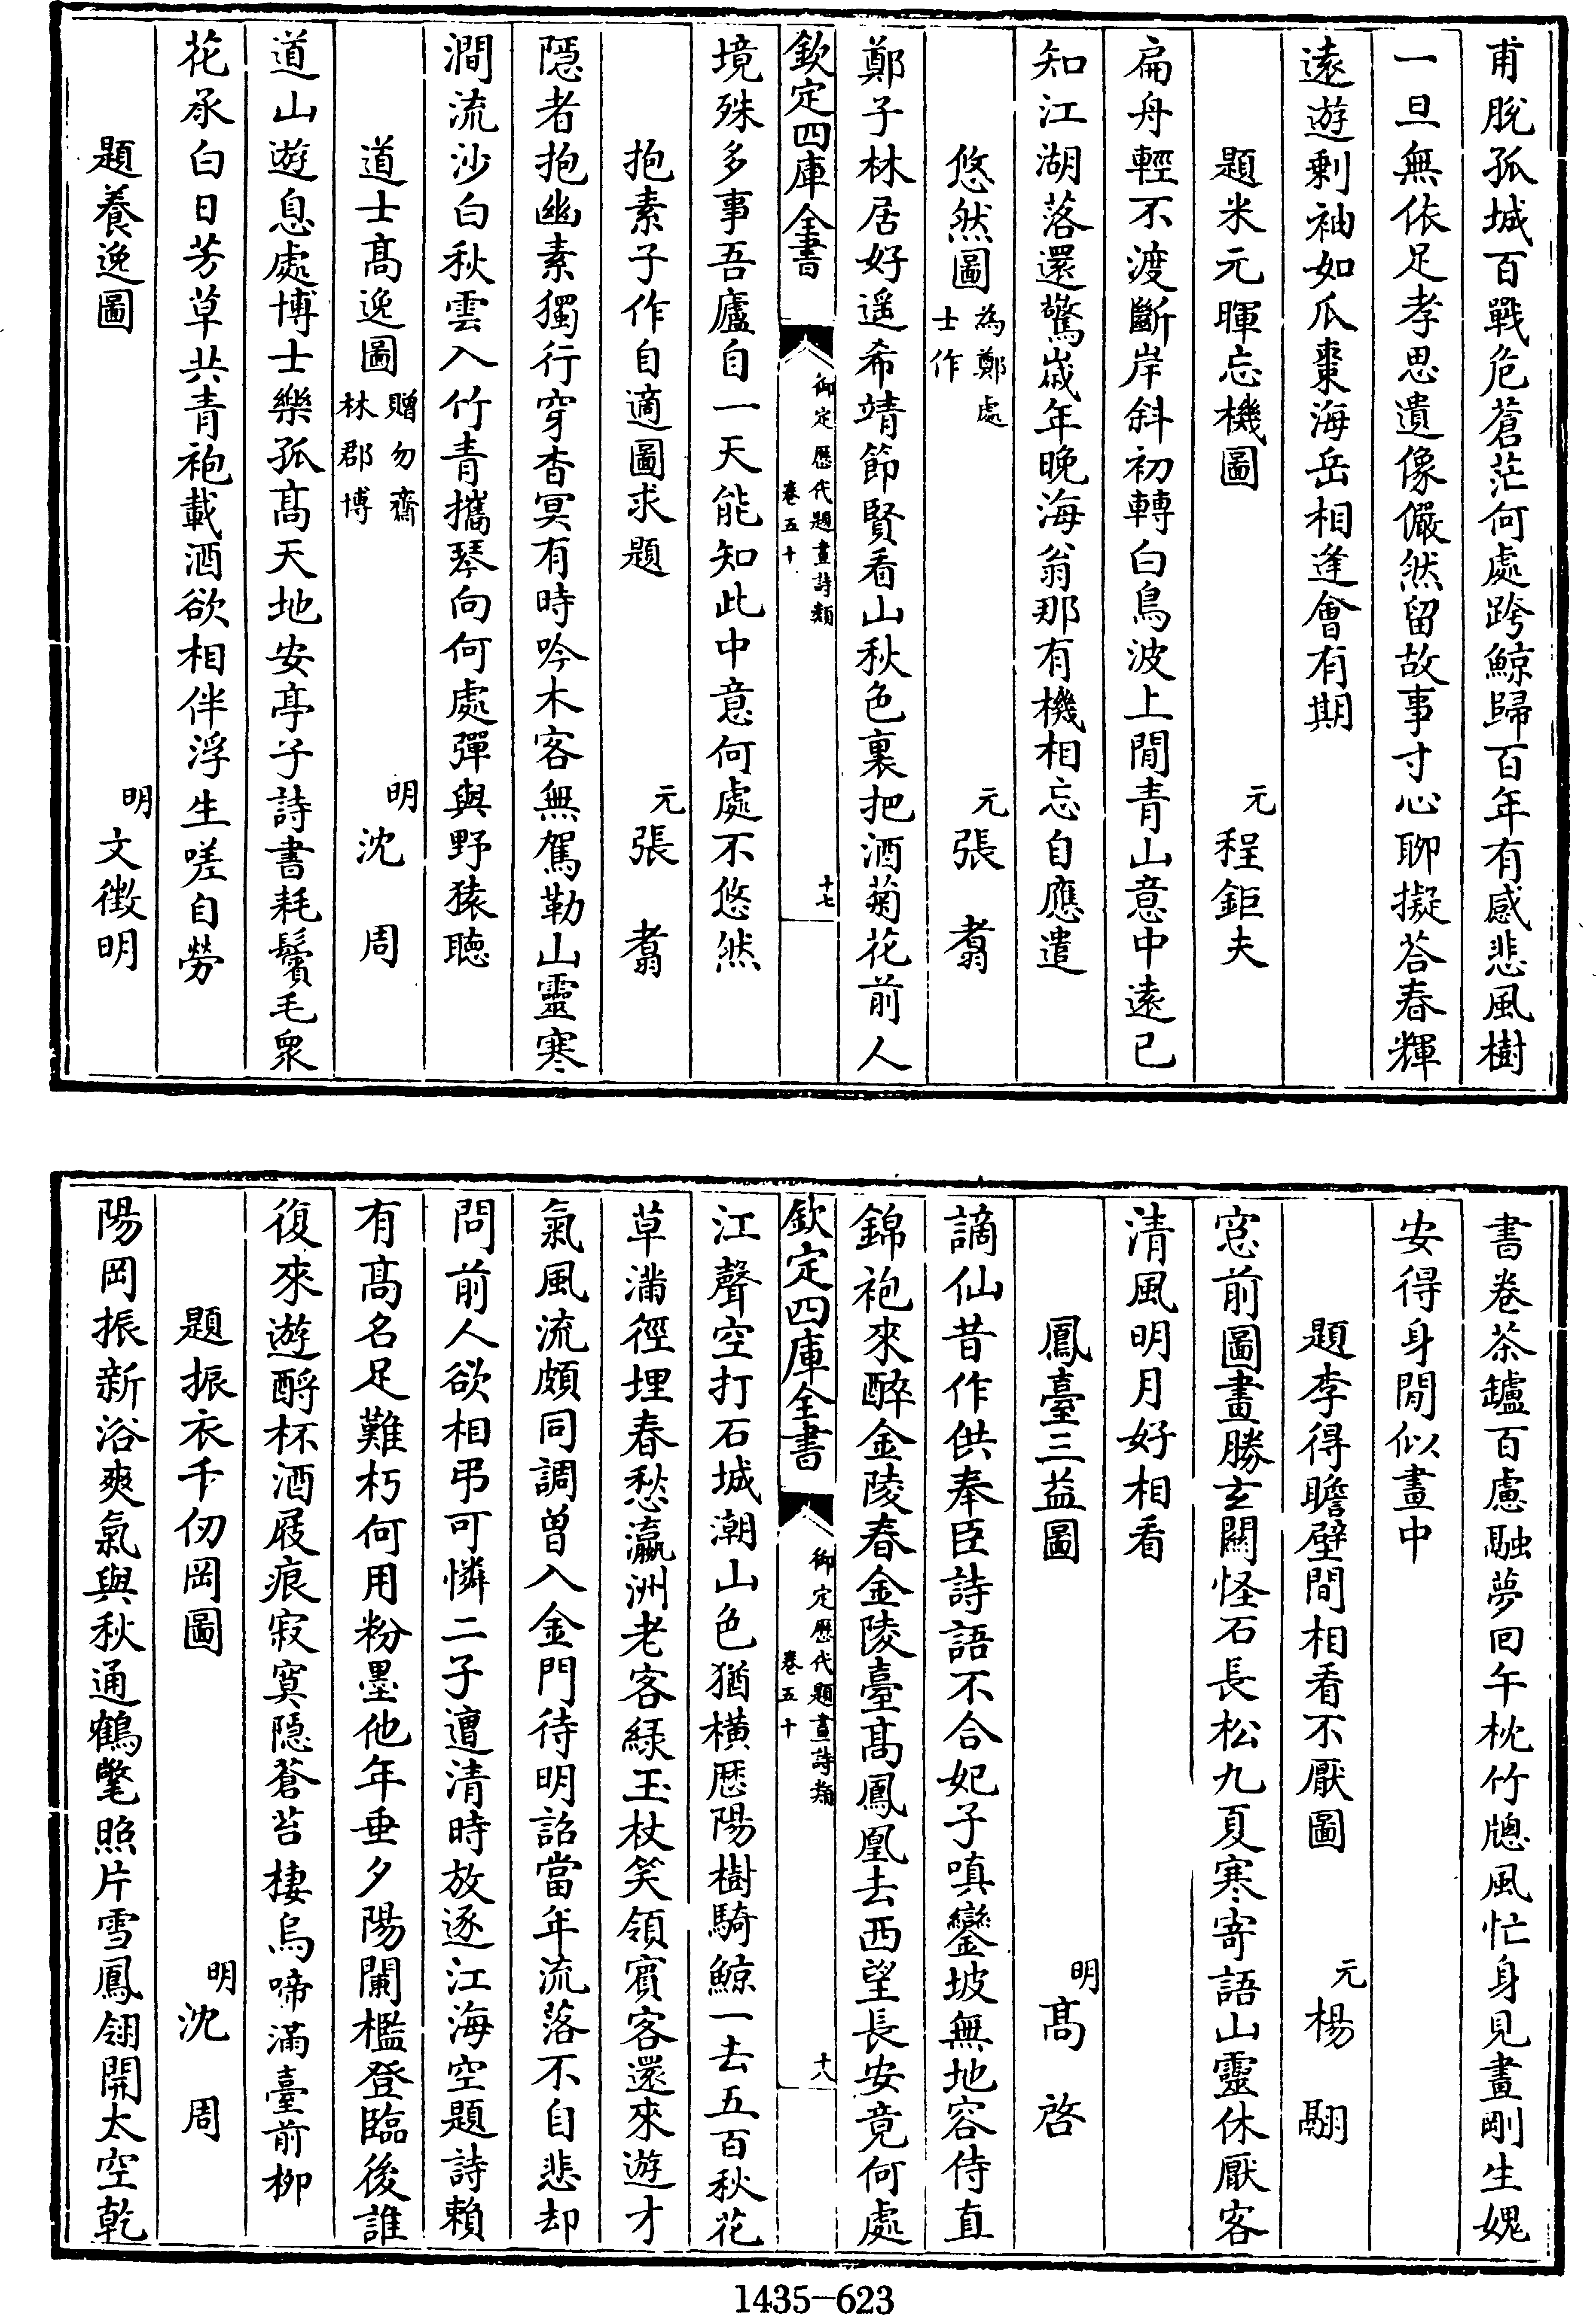 甫脫孤城百戰危蒼茫何處跨鯨歸百年有感悲風樹
一旦無依足孝思遺像儼然留故事寸心聊擬荅春輝
遠遊剩袖如瓜棗海岳相逢會有期
題米元暉忘機圖 元程鉅夫
扁舟輕不渡斷岸斜初轉白鳥波上閒青山意中遠已
知江湖落還驚嵗年晚海翁那有機相忘自應遣
悠然圖 為鄭處士作 元張翥
鄭子林居好遥希靖節賢看山秋色裏把酒菊花前人
欽定四庫全書 御定歴代題畫詩類 卷五十 十七
境殊多事吾廬自一天能知此中意何處不悠然
抱素子作自適圖求題 元張翥
隱者抱幽素獨行穿杳冥有時吟木客無駕勒山靈寒
澗流沙白秋雲入竹青攜琴向何處彈與野猿聽
道士髙逸圖 贈勿齋林郡博 明沈周
道山遊息處博士樂孤髙天地安亭子詩書耗鬢毛衆
花承白日芳草共青袍載酒欲相伴浮生嗟自勞
題養逸圖 明文徵明
書卷茶罏百慮融夢回午枕竹牕風忙身見畫剛生媿
安得身閒似畫中
題李得瞻壁間相看不厭圖 元楊翮
窓前圖畫勝玄關怪石長松九夏寒寄語山靈休厭客
清風明月好相看
鳳臺三益圖 明髙啓
謫仙昔作供奉臣詩語不合妃子嗔鑾坡無地容侍直
錦袍來醉金陵春金陵臺髙鳳凰去西望長安竟何處
欽定四庫全書 御定歴代題畫詩類 卷五十 十八
江聲空打石城潮山色猶横歴陽樹騎鯨一去五百秋花
草滿徑埋春愁瀛洲老客緑玉杖笑領賓客還來遊才
氣風流頗同調曽入金門待明詔當年流落不自悲却
問前人欲相弔可憐二子遭清時放逐江海空題詩賴
有髙名足難朽何用粉墨他年垂夕陽闌檻登臨後誰
復來遊酹杯酒屐痕寂寞隠蒼苔棲烏啼滿臺前柳
題振衣千仞岡圖 明沈周
陽岡振新浴爽氣與秋通鶴氅照片雪鳳翎開太空乾
1435-623